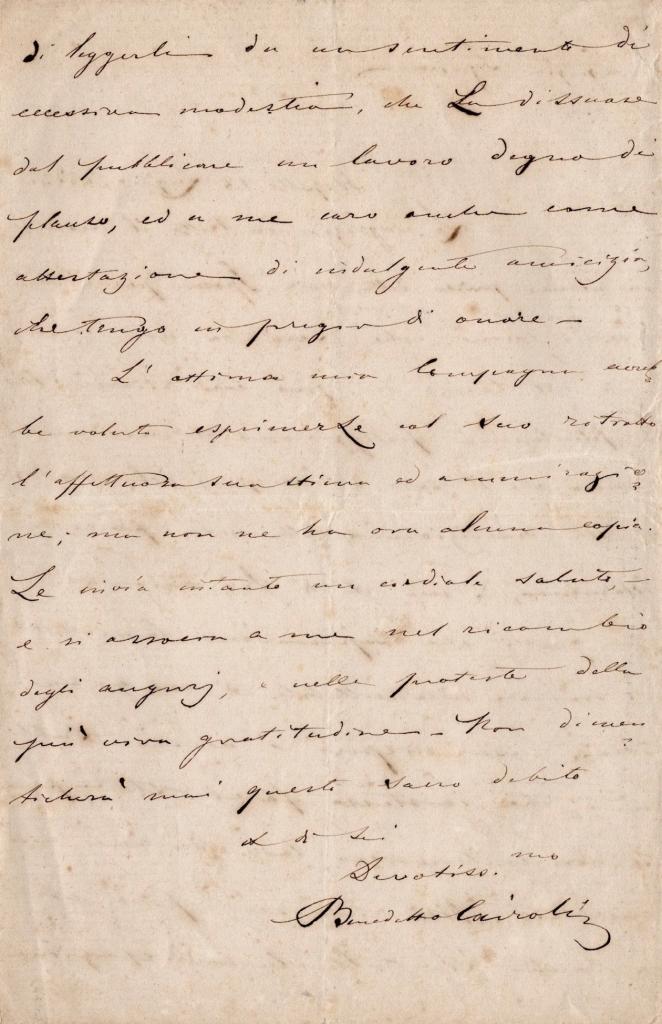 di leggerli da un sentimento di
eccessiva modestia, che La dissuase
dal pubblicare un lavoro degno di
plauso, ed a me caro anche come
attestazione di indulgente amicizia,
che tengo in pregio di onore –
L'ottima mia Compagna avreb
be voluto esprimerLe col suo ritratto
l'affettuosa sua stima ed ammirazio
ne; ma non ne ha ora alcuna copia.
Le invia intanto un cordiale saluto, –
e si associa a me nel ricambio
degli augurj, e nelle proteste della
più viva gratitudine – Non dimen
ticherà mai questo sacro debito
di Lei
Devotiss.mo
Benedetto Cairoli